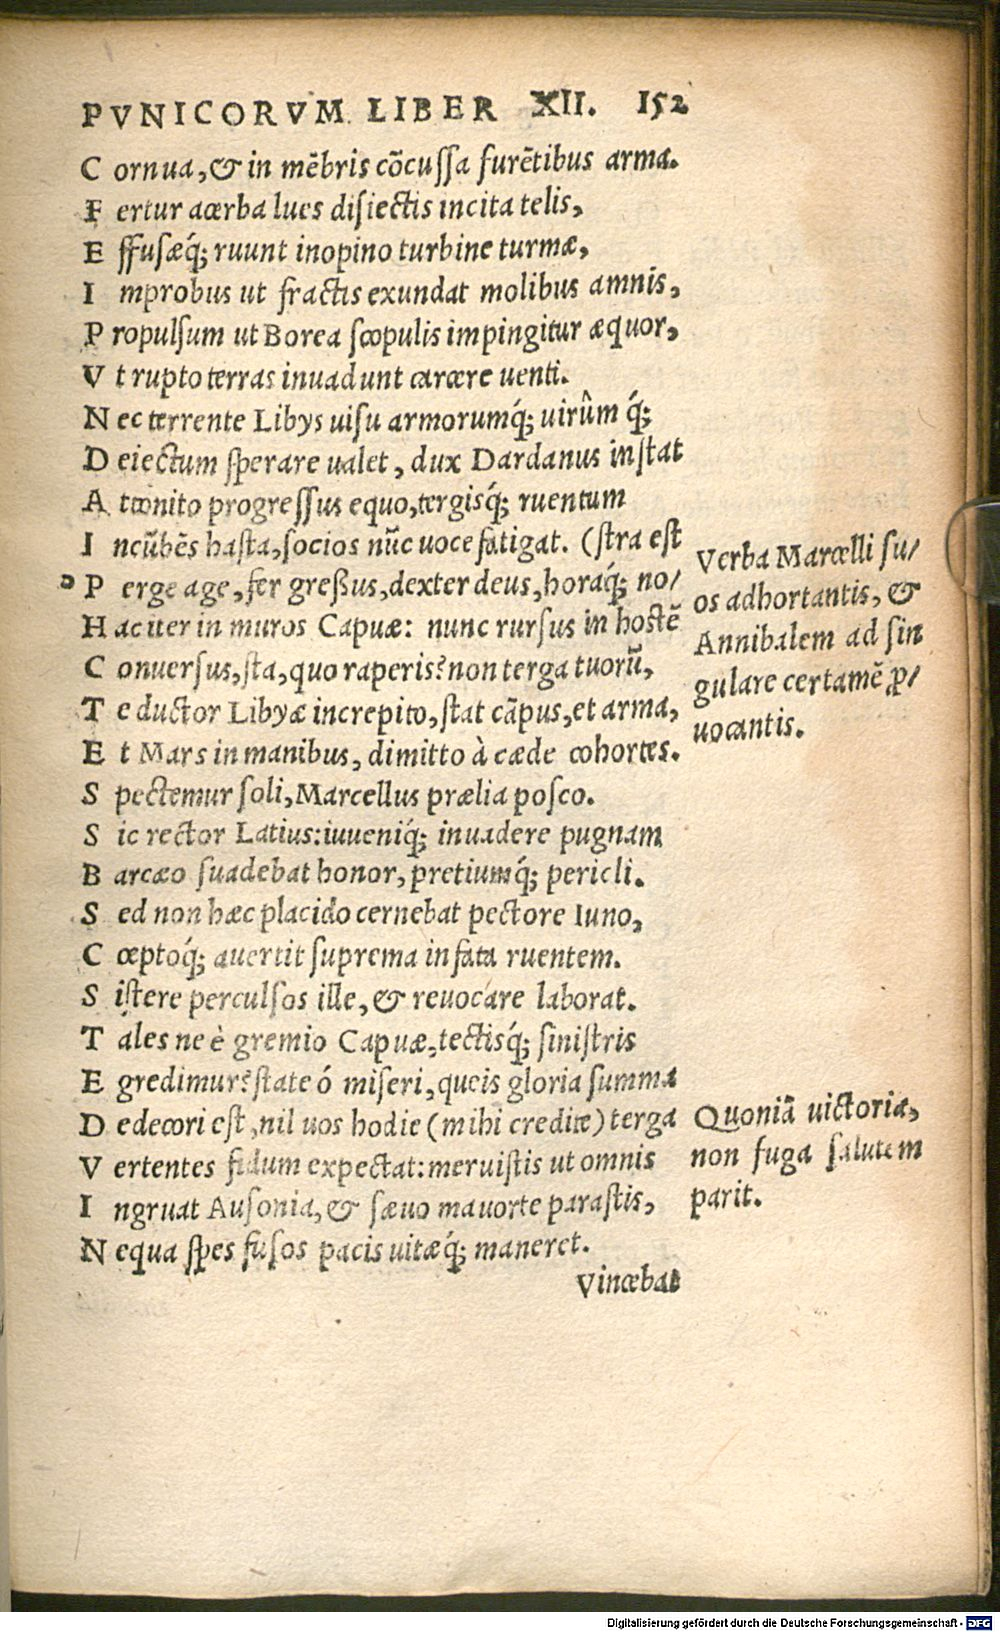 PVNICORVM LIBER XII. 152
C ornua, & in mēbris cōcussa furētibus arma.
F ertur acerba lues disiectis incita telis,
E ffusæq́; ruunt inopino turbine turmæ,
I mprobus ut fractis exundat molibus amnis,
P ropulsum ut Borea scopulis impingitur æquor,
V t rupto terras inuadunt carcere uenti.
N ec terrente Libys uisu armorumq́; uirûm q́;
D eiectum sperare ualet, dux Dardanus instat
A ttonito progressus equo, tergisq́; ruentum
I ncūbēs hasta, socios nūc uoce fatigat. (stra est
P erge age, fer greßus, dexter deus, horaq́; no/
H ac iter in muros Capuæ: nunc rursus in hostē
C onuersus, sta, quo raperis? non terga tuorū,
T e ductor Libyæ increpito, stat cāpus, et arma,
E t Mars in manibus, dimitto à cæde cohortes.
S pectemur soli, Marcellus prælia posco.
S ic rector Latius: iuueniq́; inuadere pugnam
B arcæo suadebat honor, pretiumq́; pericli.
S ed non hæc placido cernebat pectore Iuno,
C œptoq́; auertit suprema in fata ruentem.
S istere perculsos ille, & reuocare laborat.
T ales ne è gremio Capuæ, tectisq́; sinistris
E gredimur? state ó miseri, queis gloria summa
D edecori est, nil uos hodie (mihi credite) terga
V ertentes fidum expectat: meruistis ut omnis
I ngruat Ausonia, & sæuo mauorte parastis,
N equa spes fusos pacis uitæq́; maneret.
Vincebat
Verba Marcelli su/
os adhortantis, &
Annibalem ad sin
gulare certamē ꝓ/
uocantis.
Quoniā uictoria,
non fuga salutem
parit.
Digitalisierung gefördert durch die Deutsche Forschungsgemeinschaft - DFG